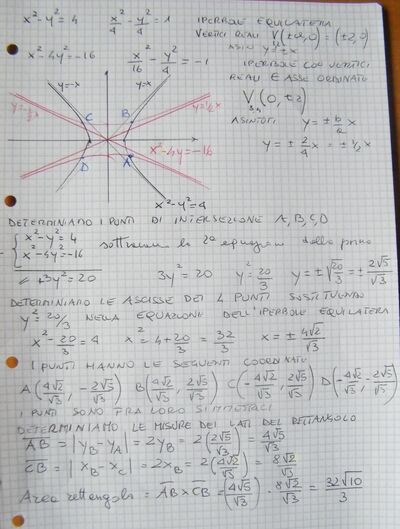 x²-y²=4   x²/4 - y²/4 = 1   IPERBOLE EQUILATERA
VERTICI REALI V(±a,0)=(±2,0)
ASIN y=±x
x²-4y²=-16   x²/16 - y²/4 = -1   IPERBOLE CON VERTICI
REALI E ASSE ORDINATO
V₃,₄(0,±2)
ASINTOTI y=±b/a x
y=±2/4 x = ±1/2 x
y=-x   y=x
y=-1/2x   y=1/2x
C   B
D   A
x²-4y²=-16
x²-y²=4
DETERMINIAMO I PUNTI DI INTERSEZIONE A,B,C,D
{x²-y²=4
x²-4y²=-16   sottraiamo la 2a equazione dalla prima
// +3y²=20   3y²=20   y²=20/3   y=±√20/√3=±2√5/√3
DETERMINIAMO LE ASCISSE DEI 4 PUNTI SOSTITUENDO
y²=20/3 NELLA EQUAZIONE DELL'IPERBOLE EQUILATERA
x²-20/3=4   x²=4+20/3=32/3   x=±4√2/√3
I PUNTI HANNO LE SEGUENTI COORDINATE
A(4√2/√3, -2√5/√3) B(4√2/√3, 2√5/√3) C(-4√2/√3, 2√5/√3) D(-4√2/√3, -2√5/√3)
I PUNTI SONO FRA LORO SIMMETRICI
DETERMINIAMO LE MISURE DEI LATI DEL RETTANGOLO
AB=|yB-yA|=2yB=2(2√5/√3)=4√5/√3
CB=|xB-xC|=2xB=2(4√2/√3)=8√2/√3
Area rettangolo=AB×CB=4√5/√3 · 8√2/√3=32√10/3